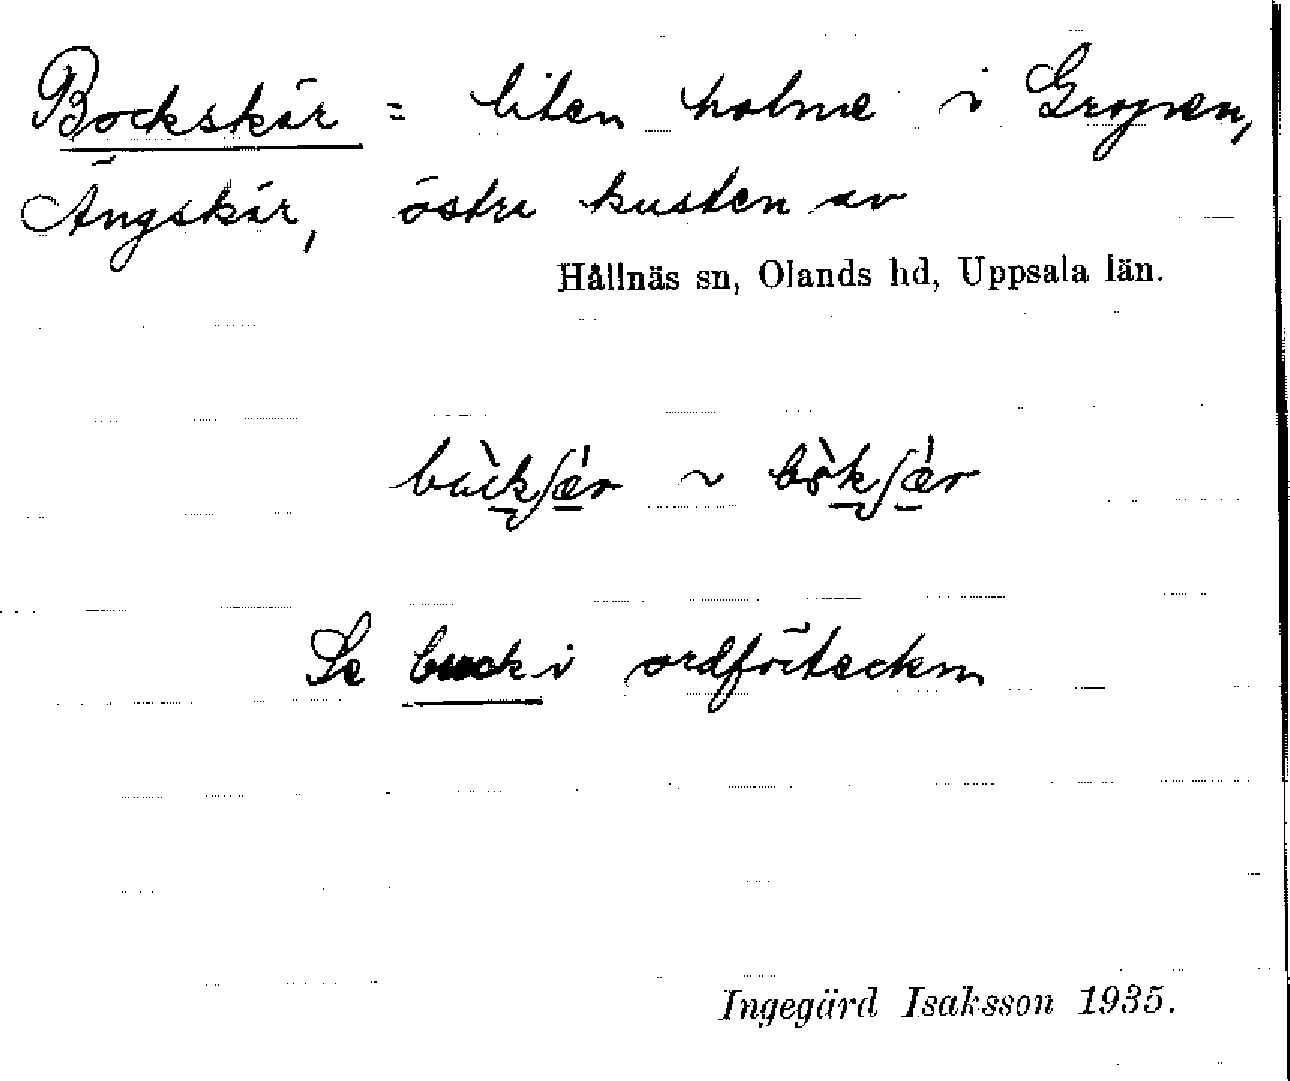 Bockskär = liten holme i
Ängskär, östra kusten av
Hållnäs sn, Olands hd, Uppsala län.
~
Se bock i ordförteckn
Ingegärd Isaksson 1935.